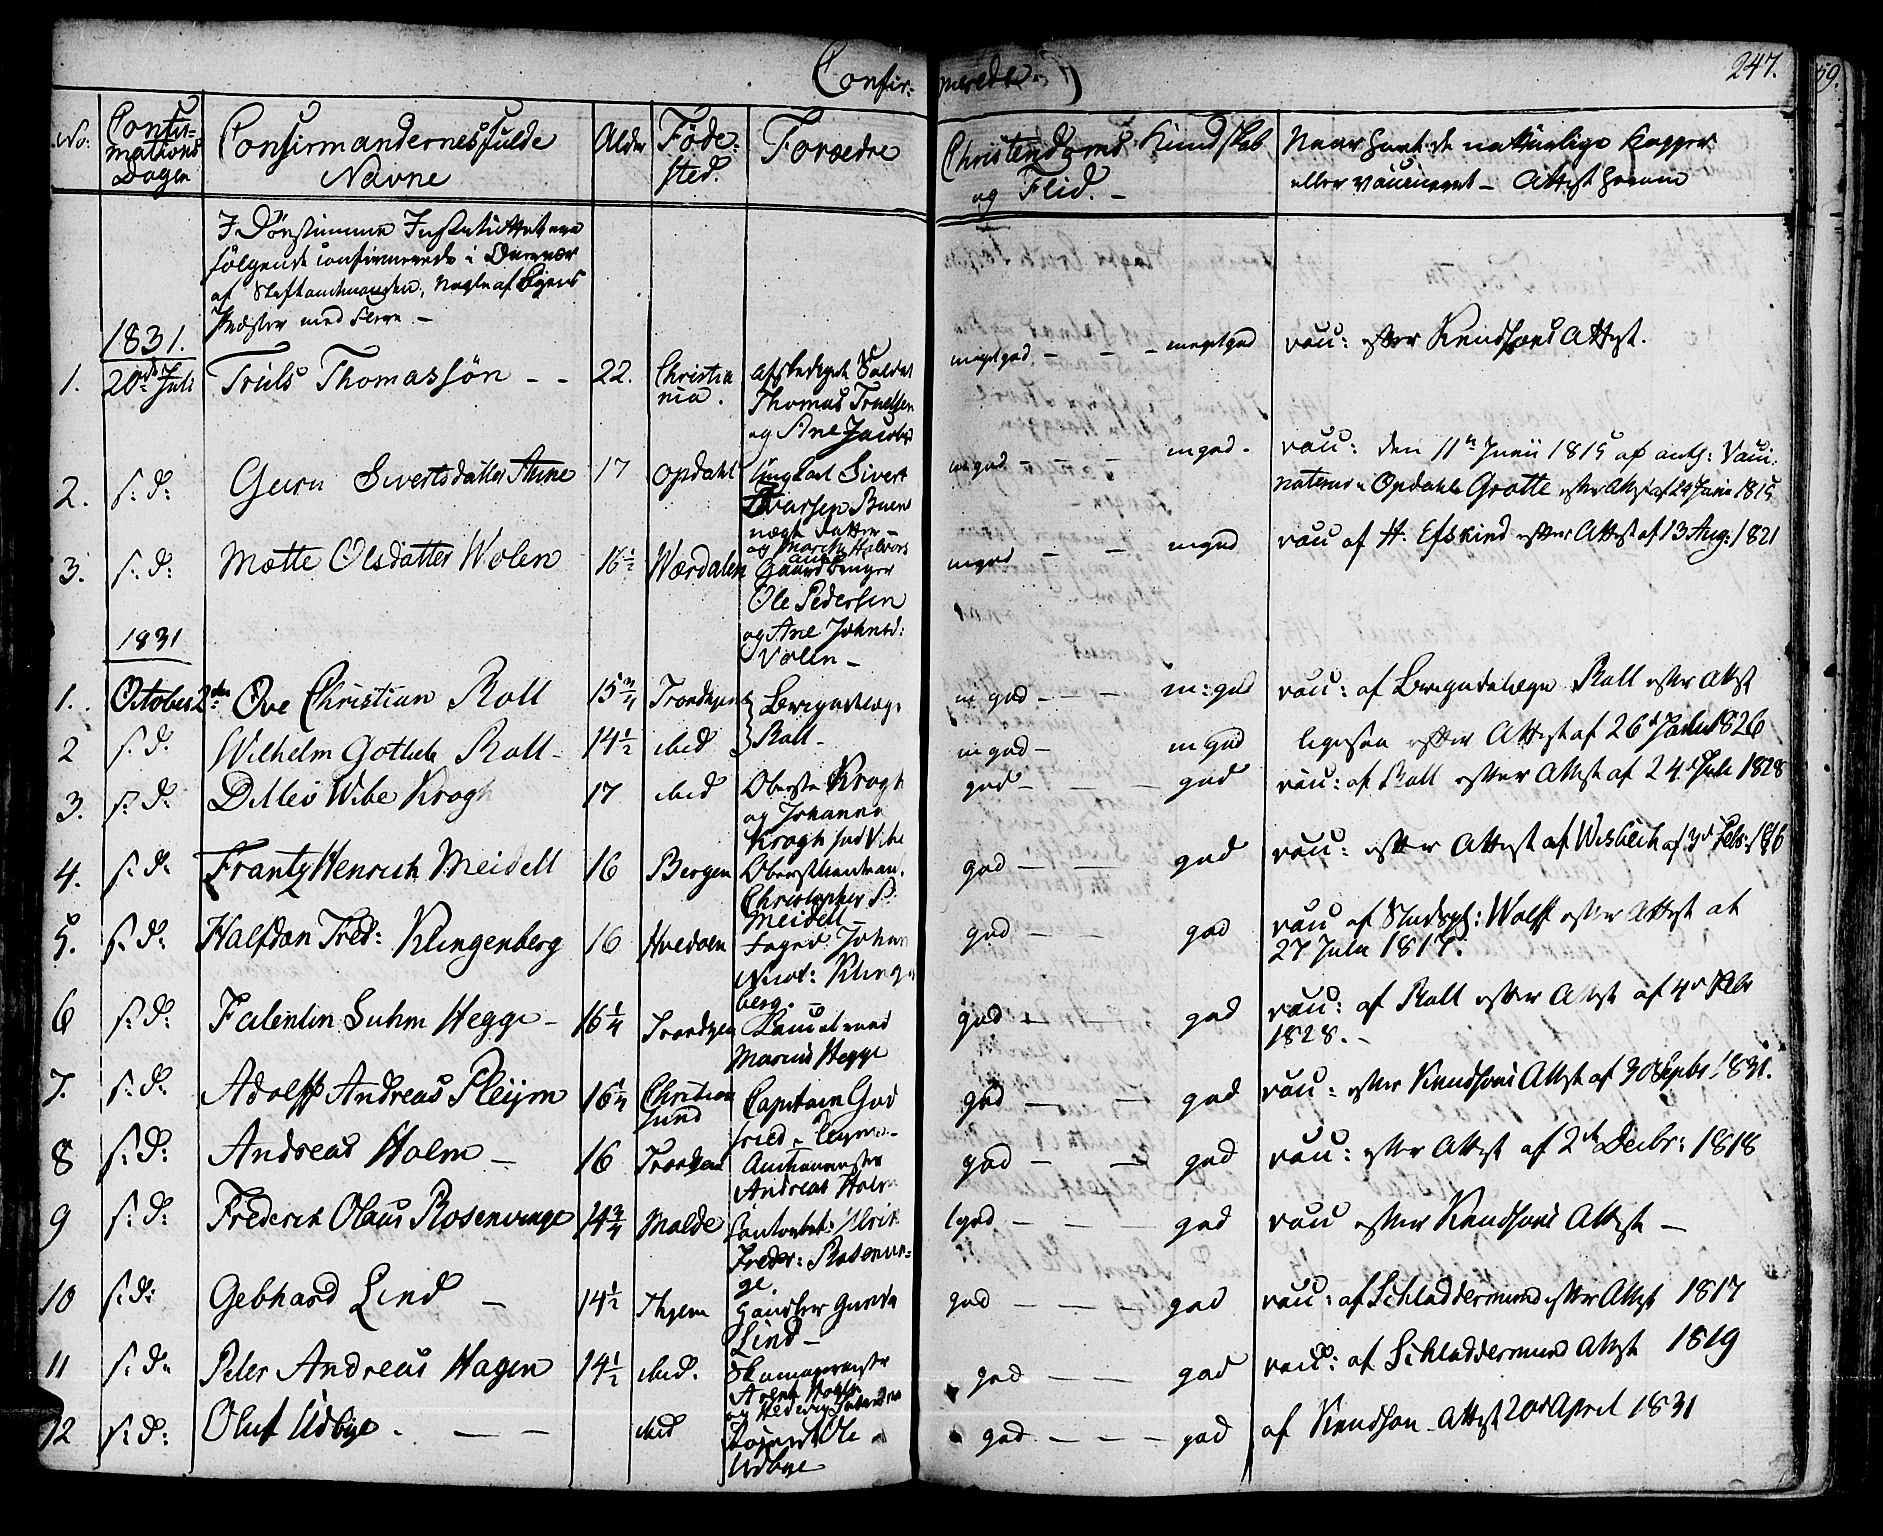 Confir- merede 247.
No: Confir- mations Dagen Confirmandernes fulde Navne Alder Føde- sted. Forældre Christendoms Kundskab og Flid. - Naar havt de naturlige Kopper eller vaccineret - Attest herom
I Døvstumme Institutet ere
følgende confirmerede i Overvær
af Stiftamtmanden, Nogle af Byens
Præster med Flere. -
1831.
1. 20de Juli Truls Thomassøn - - 22. Christia nia. Afskediget Soldat Thomas Truelsen og Ane Jacobsd meget god - - - meget god vacc: efter Knudsons Attest.
2. s: d: Guru Sivertsdatter Aune 17 Opdahl Ungkarl Sivert Ivarsen m god - - - m god. vacc: den 11te Junii 1815 af auth: Vacci- nateur i Opdahl Grotte efter Attest af 24 Junii 1815
3. s: d: Mætte Olsdatter Wolen 16½ Værdalen Ole Pedersen og Ane Johnsd: Volen - m god - - m god vacc af H. Efskind efter Attest af 13 Aug: 1821
1831
1. October 2den Ove Christian Roll 15¾ Trondhjem Brigadelæge Roll - m god - - - m: god vacc: af Brigadelæge Roll efter Attest
2 s: d: Wilhelm Gotlieb Roll - 14½ ibid m god - m god ligesaa efter Attest af 26d 1826
3. s: d: Ditlev Wibe Krogh 17 ibid Oberst Krogh og Johanna Krogh fød Vibe god - - - god vacc: af Roll efter Attest af 24d Juli 1828
4. s: d: Frantz Henrich Meidell 16 Bergen Oberstlieutnant Christopher Meidell - god - - god vacc: efter Attest af Wisbech af 3d Feb: 1816
5. s: d: Halfdan Fred: Klingenberg 16 Foged Johan Nicol: Klingen berg. - god - - god vacc af Stadsph: Wolff efter Attest af 27 Julii 1817.
6 s: d: Falentin Suhm Hegge - 16¼ Trondhjem Marius Hegge god - - god vacc: af Roll efter Attest af 4de 1828. -
7. s: d: Adolff Andreas Pleijm 16¼ Christian sund Capitain God fried Pleym - god - - god vacc: efter Knudsons Attest af 30 Septbr 1831.
8 s: d: Andreas Holm - 16 Trondhjem Andreas Holm god - - god vacc: efter Attest af 2de Decbr: 1818
9 s: d: Frederik Olaus Rosenvinge 14¾ Molde Ulrik Freder: Rosenvin- ge. god - - - god vacc efter Knudsons Attest -
10 s: d: Gebhard Lind - 14½ Thjem Lind - god - - - god vacc: af Schladdermund efter Attest 1817
11 s: d: Peter Andreas Hagen 14½ ibid. Skomagermester god - - god vacc: af Schladdermund Attest 1819
12 s: d: Oluf Udbye. - - - ibid Ole Udbye god - - - god af Knudson Attest 20de April 1831